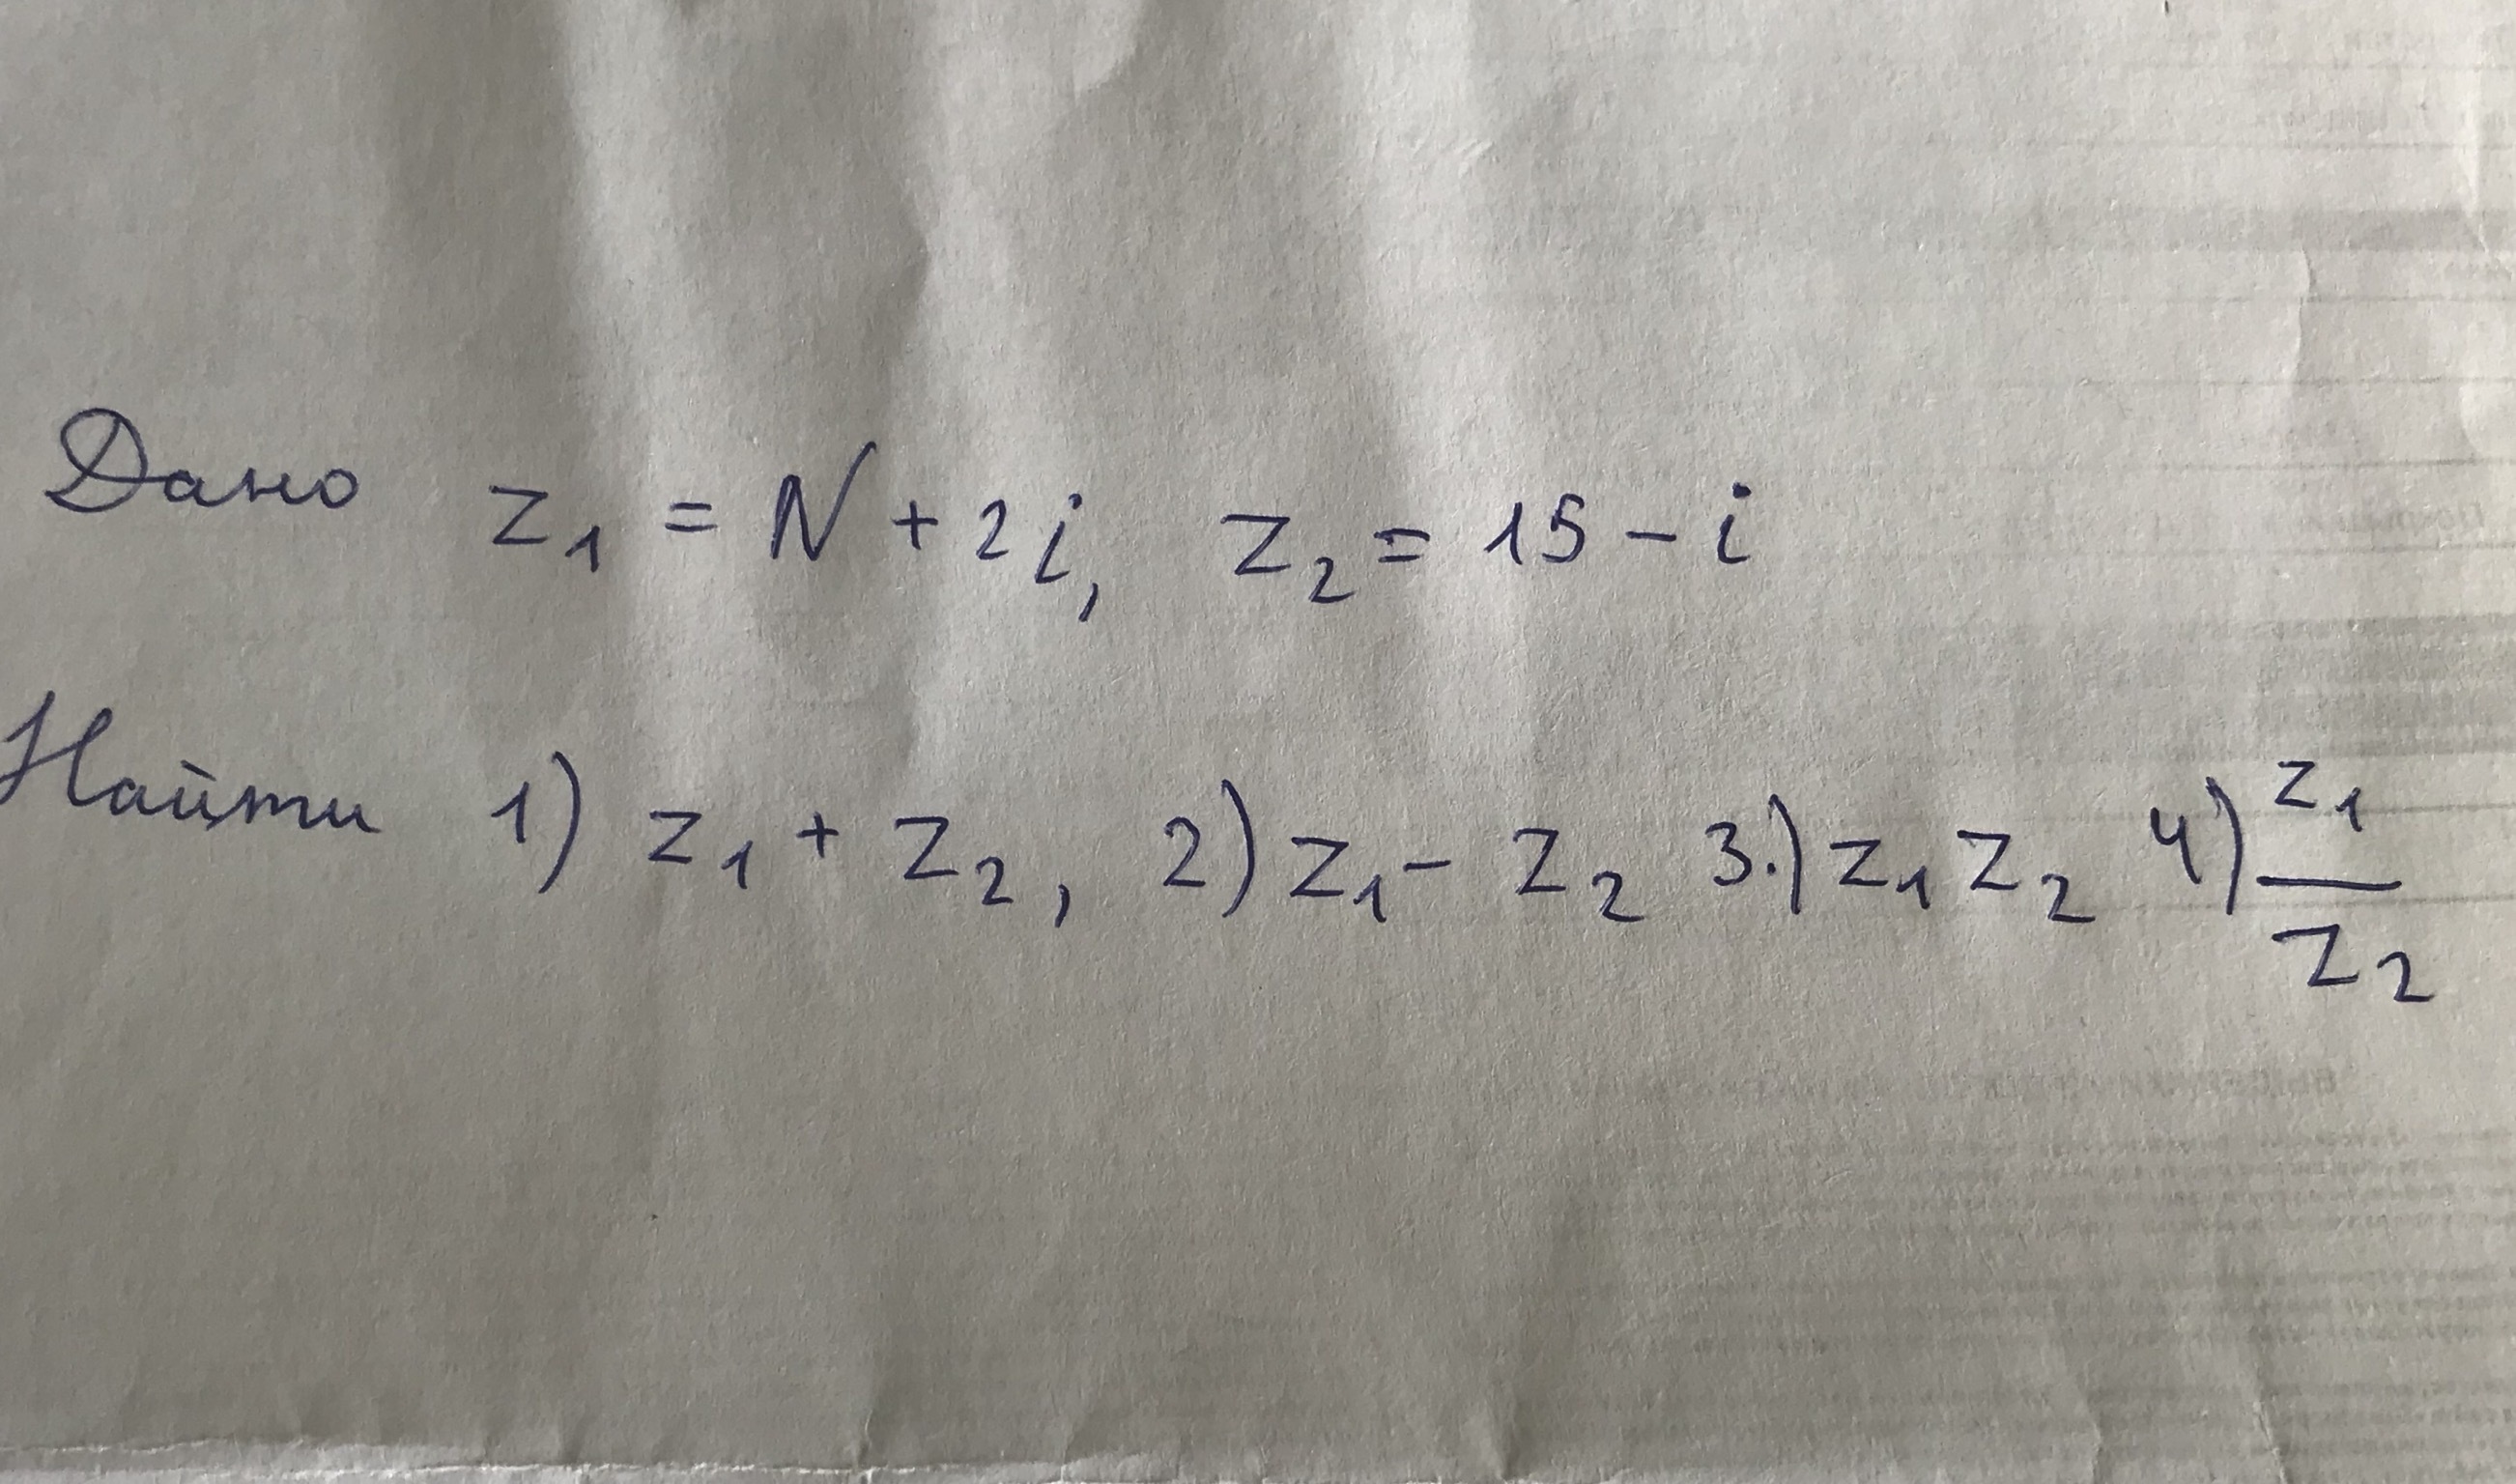 Дано z₁ = N + 2i, z₂ = 15 - i
Найти 1) z₁ + z₂, 2) z₁ - z₂ 3.) z₁ z₂ 4) z₁/z₂